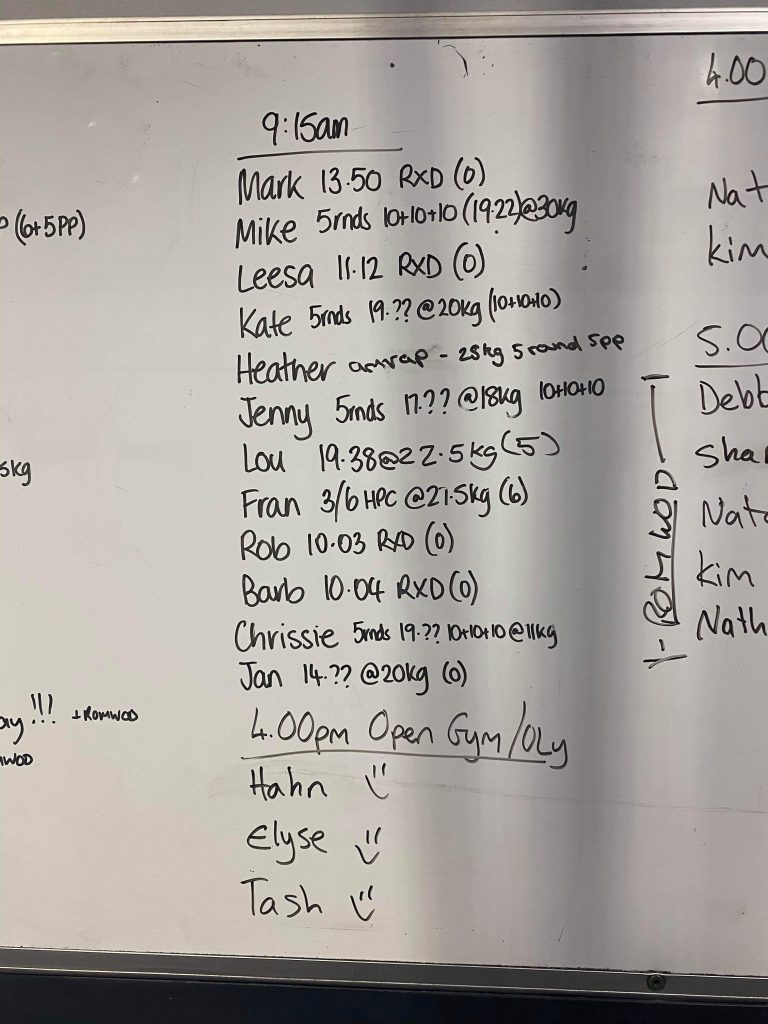 9:15am
Mark 13.50 RXD (0)
Mike 5rnds 10+10+10 (19.22)@30kg
Leesa 11.12 RXD (0)
Kate 5rnds 19.?? @20kg (10+10+10)
Heather amrap - 25kg 5 round 5pp
Jenny 5rnds 17.?? @18kg 10+10+10
Lou 19.38@22.5kg (5)
Fran 3/6 HPC @27.5kg (6)
Rob 10.03 RXD (0)
Barb 10.04 RXD (0)
Chrissie 5rnds 19.?? 10+10+10 @11kg
Jan 14.?? @20kg (0)
4.00pm Open Gym/OLy
Hahn
Elyse
Tash
(6+5PP)
5kg
!!! +ROMWOD
4.00
Nat
Kim
5.00
Debb
Shar
Nata
Kim
Nath
ROMWOD